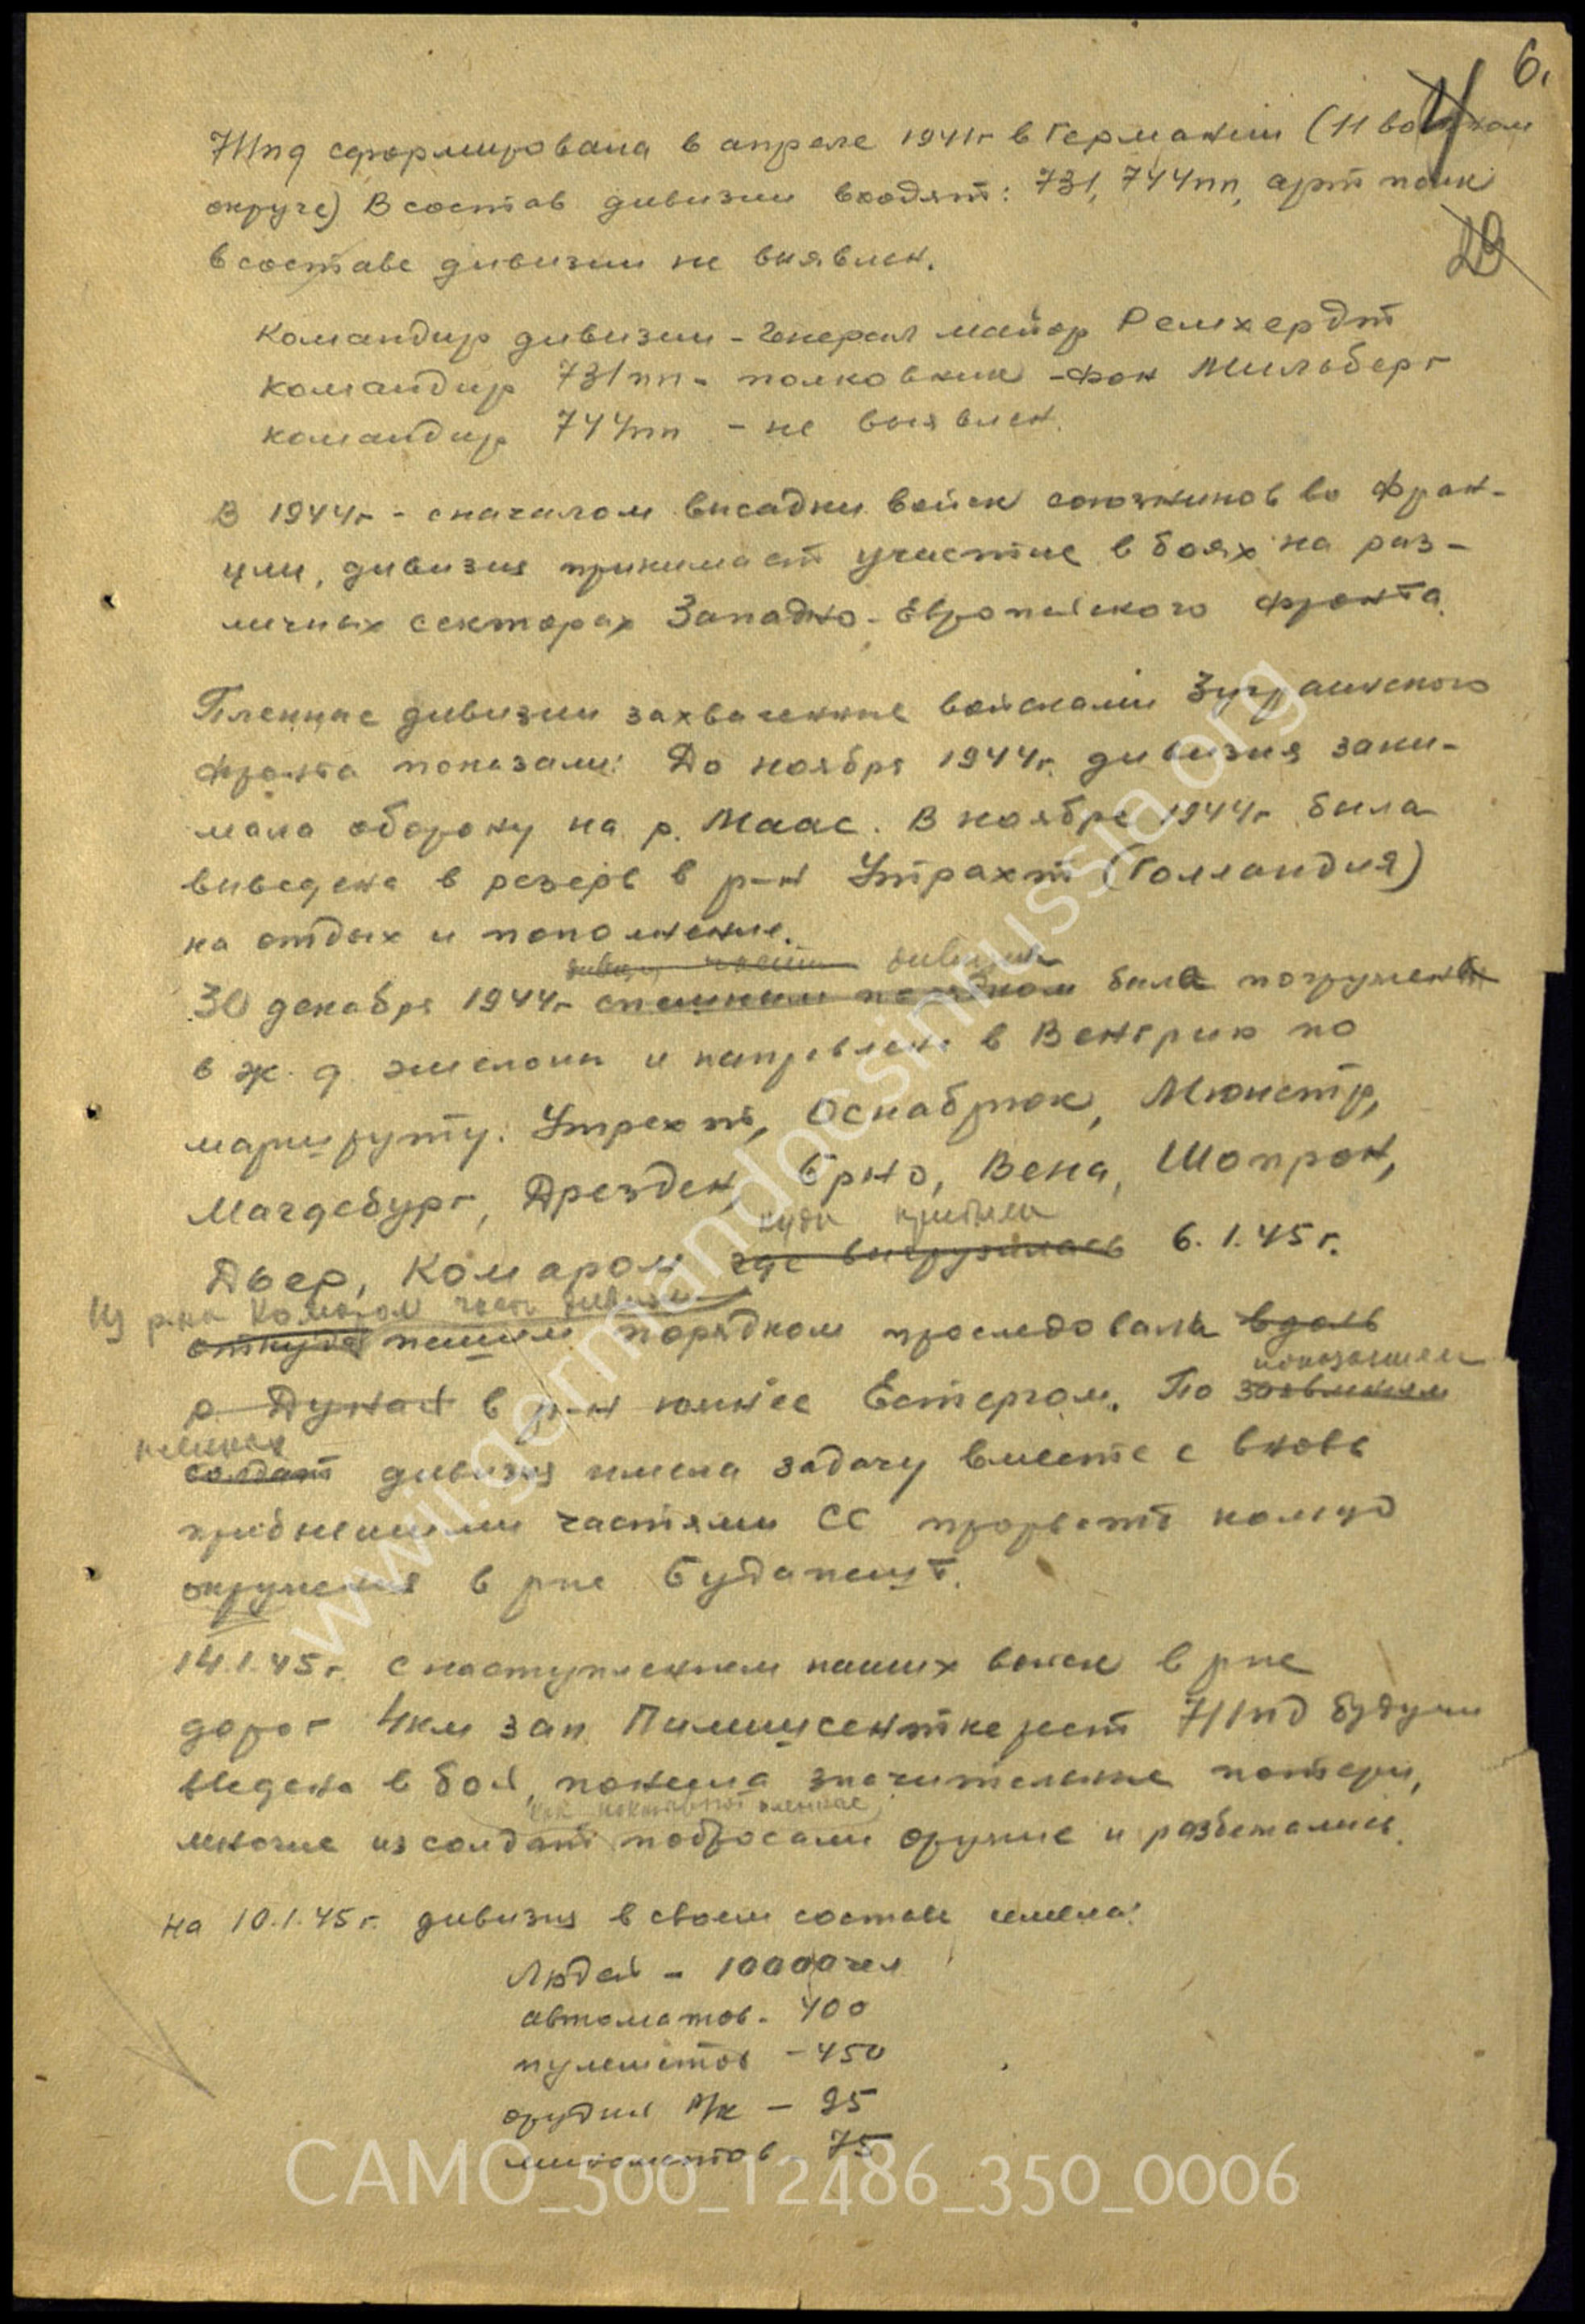 6.
11
711пд сформирована в апреле 1941г в Германии (11 военном
округе) В состав дивизии входят: 731, 744пп, арт полк
29
в составе дивизии не выявлен.
Командир дивизии - Генерал майор Ремхердт
командир 731пп - полковник - фон Мильберг
командир 744пп - не выявлен.
В 1944г - с началом высадки войск союзников во Фран-
ции, дивизия принимает участие в боях на раз-
личных секторах Западно-Европейского фронта.
Пленные дивизии захваченные войсками 3 украинского
фронта показали: До ноября 1944г. дивизия зани-
мала оборону на р. Маас. В ноябре 1944г была
выведена в резерв в р-н Утрахт (Голландия)
на отдых и пополнение.
части дивизия
30 декабря 1944г спешным порядком была погружена
в ж.д. эшелоны и направлена в Венгрию по
маршруту: Утрехт, Оснабрюк, Мюнстр,
Магдебург, Дрезден, Брно, Вена, Шопрон,
куда прибыла
Дьер, Комаром где выгрузилась 6.1.45г.
Из р-на Комаром часть дивизии
откуда пешим порядком проследовала вдоль
показаниям
р. Дунай в р-н южнее Естергом. По заявлениям
пленных
солдат дивизия имела задачу вместе с вновь
прибывшими частями СС прорвать кольцо
окружения в рне Будапешт.
14.1.45г. с наступлением наших войск в рне
дорог 4км зап. Пилишсенткерест 711пд будучи
введена в бой, понесла значительные потери,
как показывают пленные
многие из солдат побросали оружие и разбежались.
на 10.1.45г. дивизия в своем составе имела:
Людей - 10000 чел
автоматов - 400
пулеметов - 450
орудия п/к - 25
минометов 75
www.germandocsinrussia.org
CAMO_500_12486_350_0006